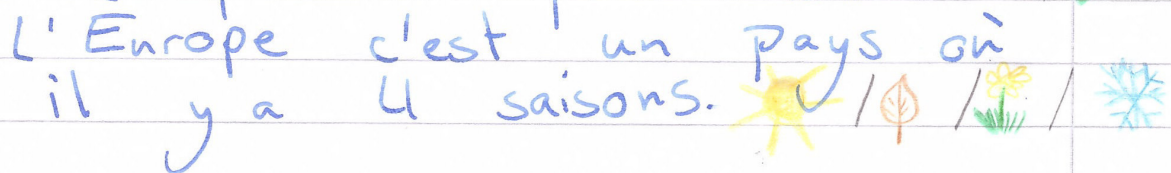 L'Europe c'est un pays où
il y a 4 saisons. / / /